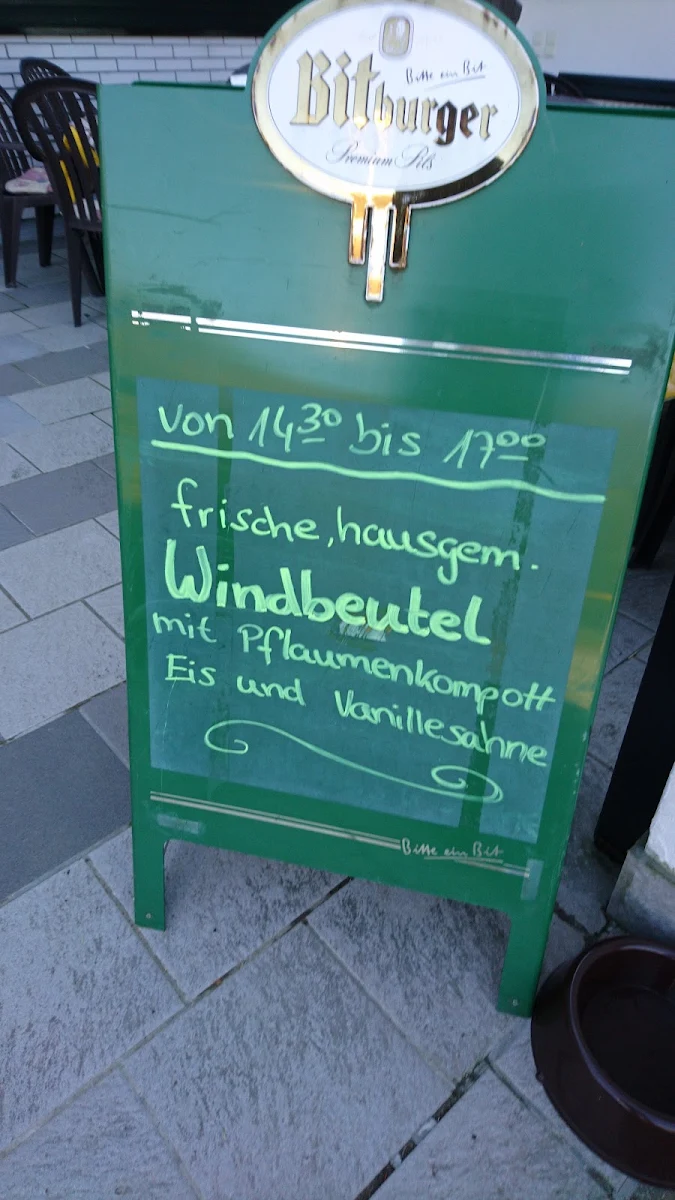 Bitte ein Bit
Bitburger
Premium Pils
von 14³⁰ bis 17⁰⁰
frische, hausgem.
Windbeutel
mit Pflaumenkompott
Eis und Vanillesahne
Bitte ein Bit